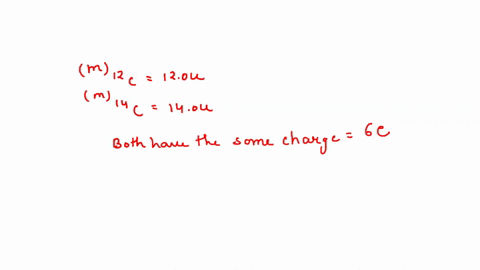 (m)12C = 12.0u
(m)14C = 14.0u
Both have the same charge = 6e